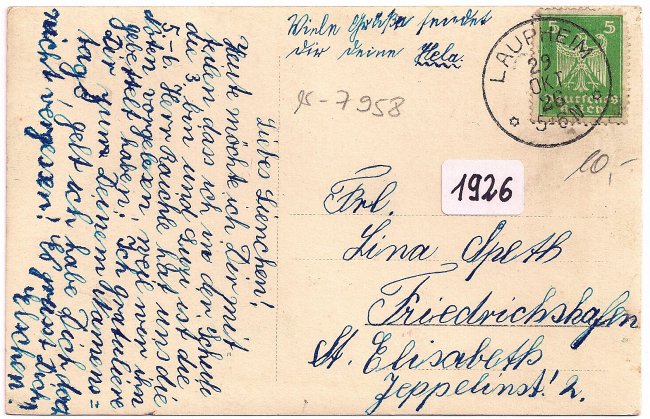 Liebes Linchen!
Heut möchte ich Dir mit=
teilen das ich in der Schule
die 3. bin und Luzi ist die
5-6. Herr Rauche hat uns die
Noten vorgelesen, weil wir ihn
gebettelt haben! Ich gratuliere
Dir zum Deinem Namens=
tage, gelt ich habe Dich doch
nicht vergessen! Es grüsst Dich
Elschen!
Viele Grüße sendet
dir deine Hela.
7958
LAUPHEIM
29
OKT
26
5-6N
5 5
Deutsches
Reich
10,-
1926
Frl.
Lina Speth
Friedrichshafen
St. Elisabeth
Zeppelinst! 2.